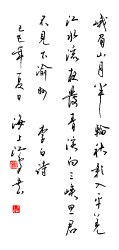 峨眉山月半輪秋影入平羌
江水流夜發清溪向三峡思君
不見下渝州 李白诗
年夏日 海上江书